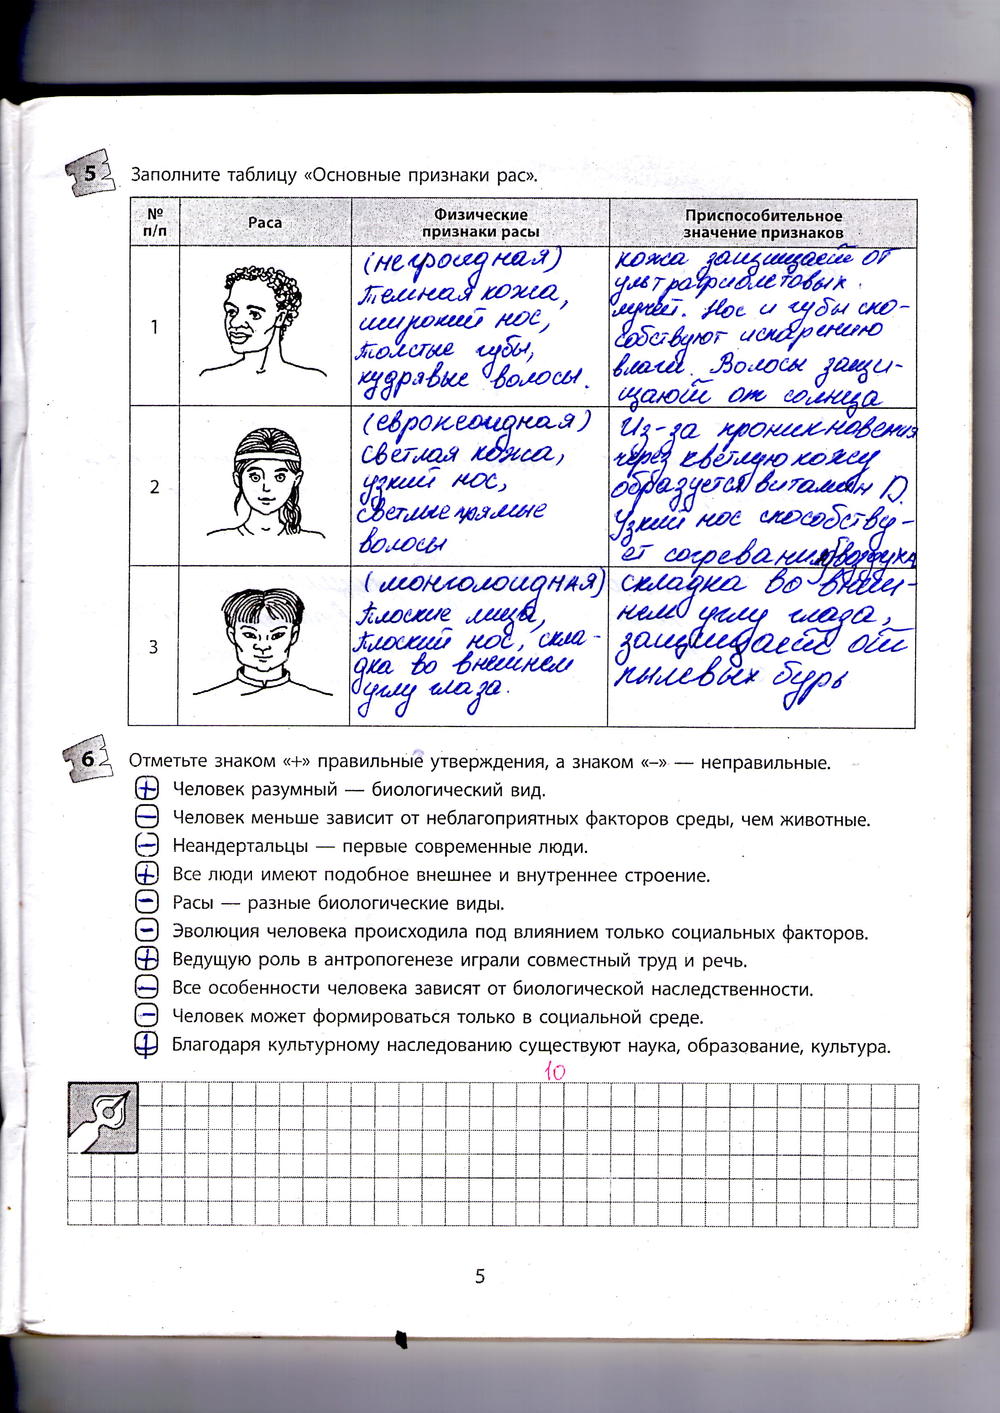 5 Заполните таблицу «Основные признаки рас».
№ п/п
Раса
Физические признаки расы
Приспособительное значение признаков
1
(негроидная)
Темная кожа,
широкий нос,
Толстые губы,
кудрявые волосы.
кожа защищает от
ультрафиолетовых
лучей. Нос и губы спо-
собствуют испарению
влаги. Волосы защи-
щают от солнца
2
(евроксоидная)
светлая кожа,
узкий нос,
светлые прямые
волосы
Из-за проникновения
через кветлую кожу
образуется витамин D.
Узкий нос способству-
ет согреванию воздуха
3
(монголоидная)
Плоские лица,
Плоский нос, скла-
дка во внешнем
углу глаза.
складка во внеш-
нем углу глаза,
защищает от
пылевых бурь
6 Отметьте знаком «+» правильные утверждения, а знаком «–» — неправильные.
+ Человек разумный — биологический вид.
– Человек меньше зависит от неблагоприятных факторов среды, чем животные.
– Неандертальцы — первые современные люди.
+ Все люди имеют подобное внешнее и внутреннее строение.
– Расы — разные биологические виды.
– Эволюция человека происходила под влиянием только социальных факторов.
+ Ведущую роль в антропогенезе играли совместный труд и речь.
– Все особенности человека зависят от биологической наследственности.
– Человек может формироваться только в социальной среде.
+ Благодаря культурному наследованию существуют наука, образование, культура.
10
5